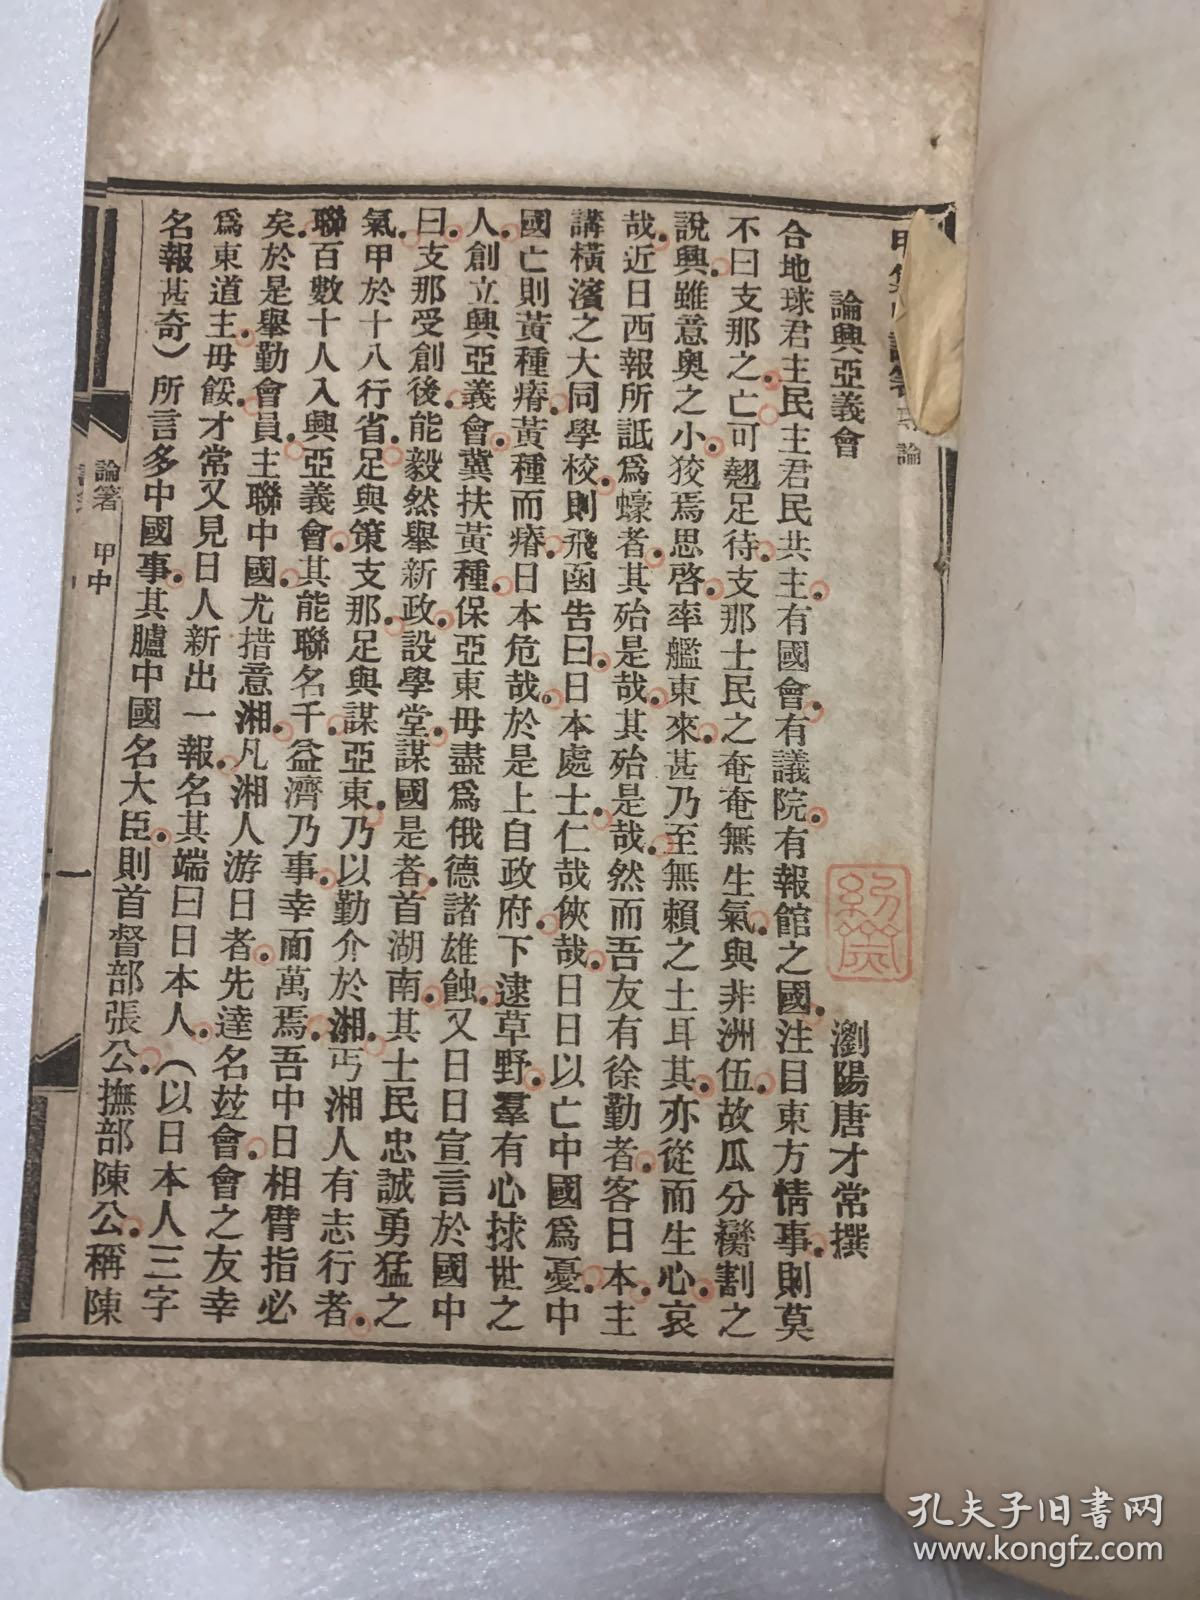 論
論興亞義會
瀏陽唐才常撰
合地球君主民主君民共主有國會有議院有報館之國注目東方情事則莫
不曰支那之亡可翹足待支那士民之奄奄無生氣與非洲伍故瓜分臠割之
說興雖意奧之小狡焉思啓率艦東來甚乃至無賴之土耳其亦從而生心哀
哉近日西報所詆爲蠔者其殆是哉其殆是哉然而吾友有徐勤者客日本主
講橫濱之大同學校則飛函告曰日本處士仁哉俠哉日日以亡中國爲憂中
國亡則黃種瘠黃種而瘠日本危哉於是上自政府下逮草野羣有心捄世之
人創立興亞義會冀扶黃種保亞東毋盡爲俄德諸雄蝕又日日宣言於國中
曰支那受創後能毅然舉新政設學堂謀國是者首湖南其士民忠誠勇猛之
氣甲於十八行省足與策支那足與謀亞東乃以勤介於湘丐湘人有志行者
聯百數十人入興亞義會其能聯名千益濟乃事幸而萬焉吾中日相臂指必
矣於是舉勤會員主聯中國尤措意湘凡湘人游日者先達名玆會會之友幸
爲東道主毋餒才常又見日人新出一報名其端曰日本人（以日本人三字
名報甚奇）所言多中國事其臚中國名大臣則首督部張公撫部陳公稱陳
論箸 甲中
一
孔夫子旧书网
www.kongfz.com